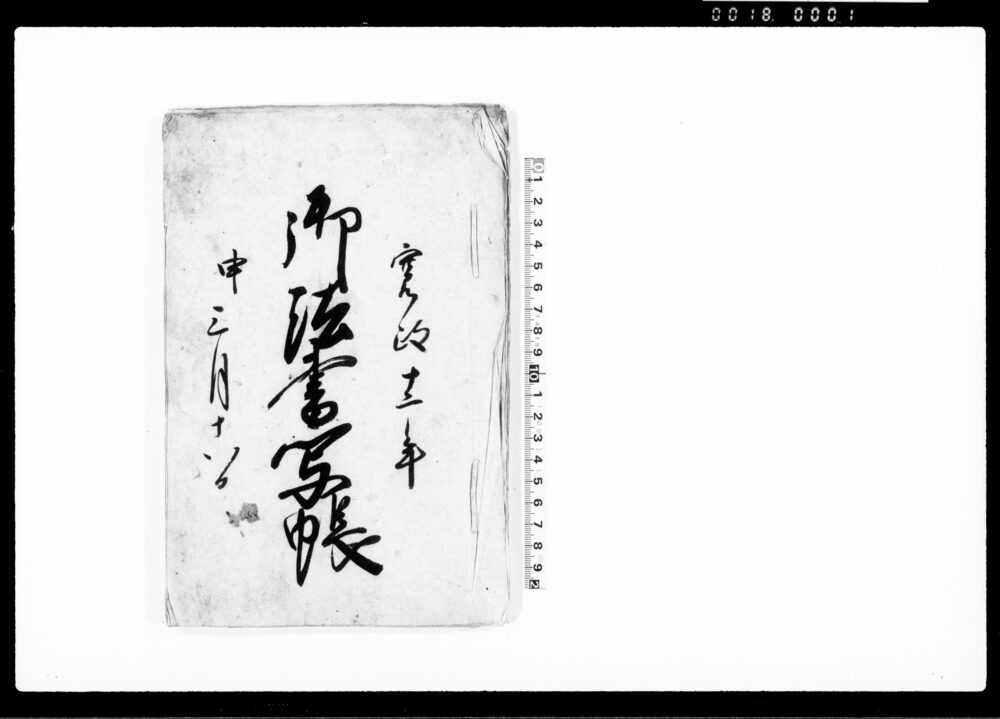 0018 0001
寛政十二年
御法書写帳
申三月十八日
0 1 2 3 4 5 6 7 8 9 10 1 2 3 4 5 6 7 8 9 2